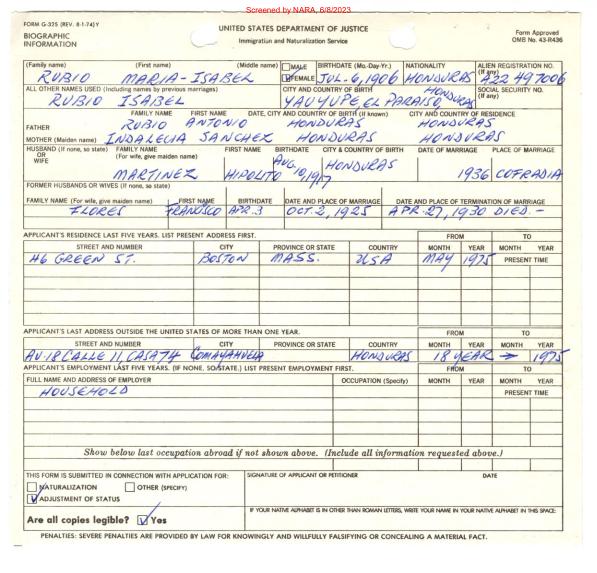 Screened by NARA, 6/8/2023
FORM G-325 (REV. 8-1-74) Y
BIOGRAPHIC
INFORMATION
UNITED STATES DEPARTMENT OF JUSTICE
Immigration and Naturalization Service
Form Approved
OMB No. 43-R436
(Family name) (First name) (Middle name) MALE BIRTHDATE (Mo.-Day-Yr.) NATIONALITY ALIEN REGISTRATION NO.
(If any)
RUBIO MARIA-ISABEL FEMALE JUL. 6, 1906 HONDURAS A22 497006
ALL OTHER NAMES USED (Including names by previous marriages) CITY AND COUNTRY OF BIRTH SOCIAL SECURITY NO.
(If any)
RUBIO ISABEL YAUYUPE, EL PARAISO, HONDURAS
FAMILY NAME FIRST NAME DATE, CITY AND COUNTRY OF BIRTH (If known) CITY AND COUNTRY OF RESIDENCE
FATHER RUBIO ANTONIO HONDURAS HONDURAS
MOTHER (Maiden name) INDALECIA SANCHEZ HONDURAS HONDURAS
HUSBAND (If none, so state) FAMILY NAME FIRST NAME BIRTHDATE CITY & COUNTRY OF BIRTH DATE OF MARRIAGE PLACE OF MARRIAGE
OR (For wife, give maiden name)
WIFE
MARTINEZ HIPOLITO AUG. 10, 1917 HONDURAS 1936 COFRADIA
FORMER HUSBANDS OR WIVES (If none, so state)
FAMILY NAME (For wife, give maiden name) FIRST NAME BIRTHDATE DATE AND PLACE OF MARRIAGE DATE AND PLACE OF TERMINATION OF MARRIAGE
FLORES FRANCISCO APR. 3 OCT. 2, 1925 APR. 27, 1930 DIED. -
APPLICANT'S RESIDENCE LAST FIVE YEARS. LIST PRESENT ADDRESS FIRST. FROM TO
STREET AND NUMBER CITY PROVINCE OR STATE COUNTRY MONTH YEAR MONTH YEAR
46 GREEN ST. BOSTON MASS. USA MAY 1975 PRESENT TIME
APPLICANT'S LAST ADDRESS OUTSIDE THE UNITED STATES OF MORE THAN ONE YEAR. FROM TO
STREET AND NUMBER CITY PROVINCE OR STATE COUNTRY MONTH YEAR MONTH YEAR
AV-18 CALLE 11, CASA 74 COMAYAHUELA HONDURAS 18 YEAR → 1975
APPLICANT'S EMPLOYMENT LAST FIVE YEARS. (IF NONE, SO STATE.) LIST PRESENT EMPLOYMENT FIRST. FROM TO
FULL NAME AND ADDRESS OF EMPLOYER OCCUPATION (Specify) MONTH YEAR MONTH YEAR
HOUSEHOLD PRESENT TIME
Show below last occupation abroad if not shown above. (Include all information requested above.)
THIS FORM IS SUBMITTED IN CONNECTION WITH APPLICATION FOR: SIGNATURE OF APPLICANT OR PETITIONER DATE
NATURALIZATION OTHER (SPECIFY)
ADJUSTMENT OF STATUS
IF YOUR NATIVE ALPHABET IS IN OTHER THAN ROMAN LETTERS, WRITE YOUR NAME IN YOUR NATIVE ALPHABET IN THIS SPACE:
Are all copies legible? Yes
PENALTIES: SEVERE PENALTIES ARE PROVIDED BY LAW FOR KNOWINGLY AND WILLFULLY FALSIFYING OR CONCEALING A MATERIAL FACT.